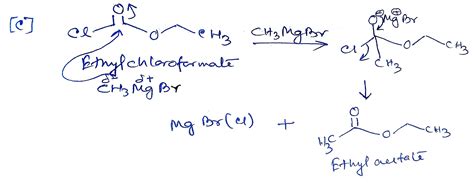 [C]
O
Cl O CH3
Ethylchloroformate
δ⊖ δ+
CH3MgBr
CH3MgBr
O⊖ ⊕MgBr
Cl O CH3
CH3
MgBr(Cl) +
O
H3C O CH3
Ethyl acetate